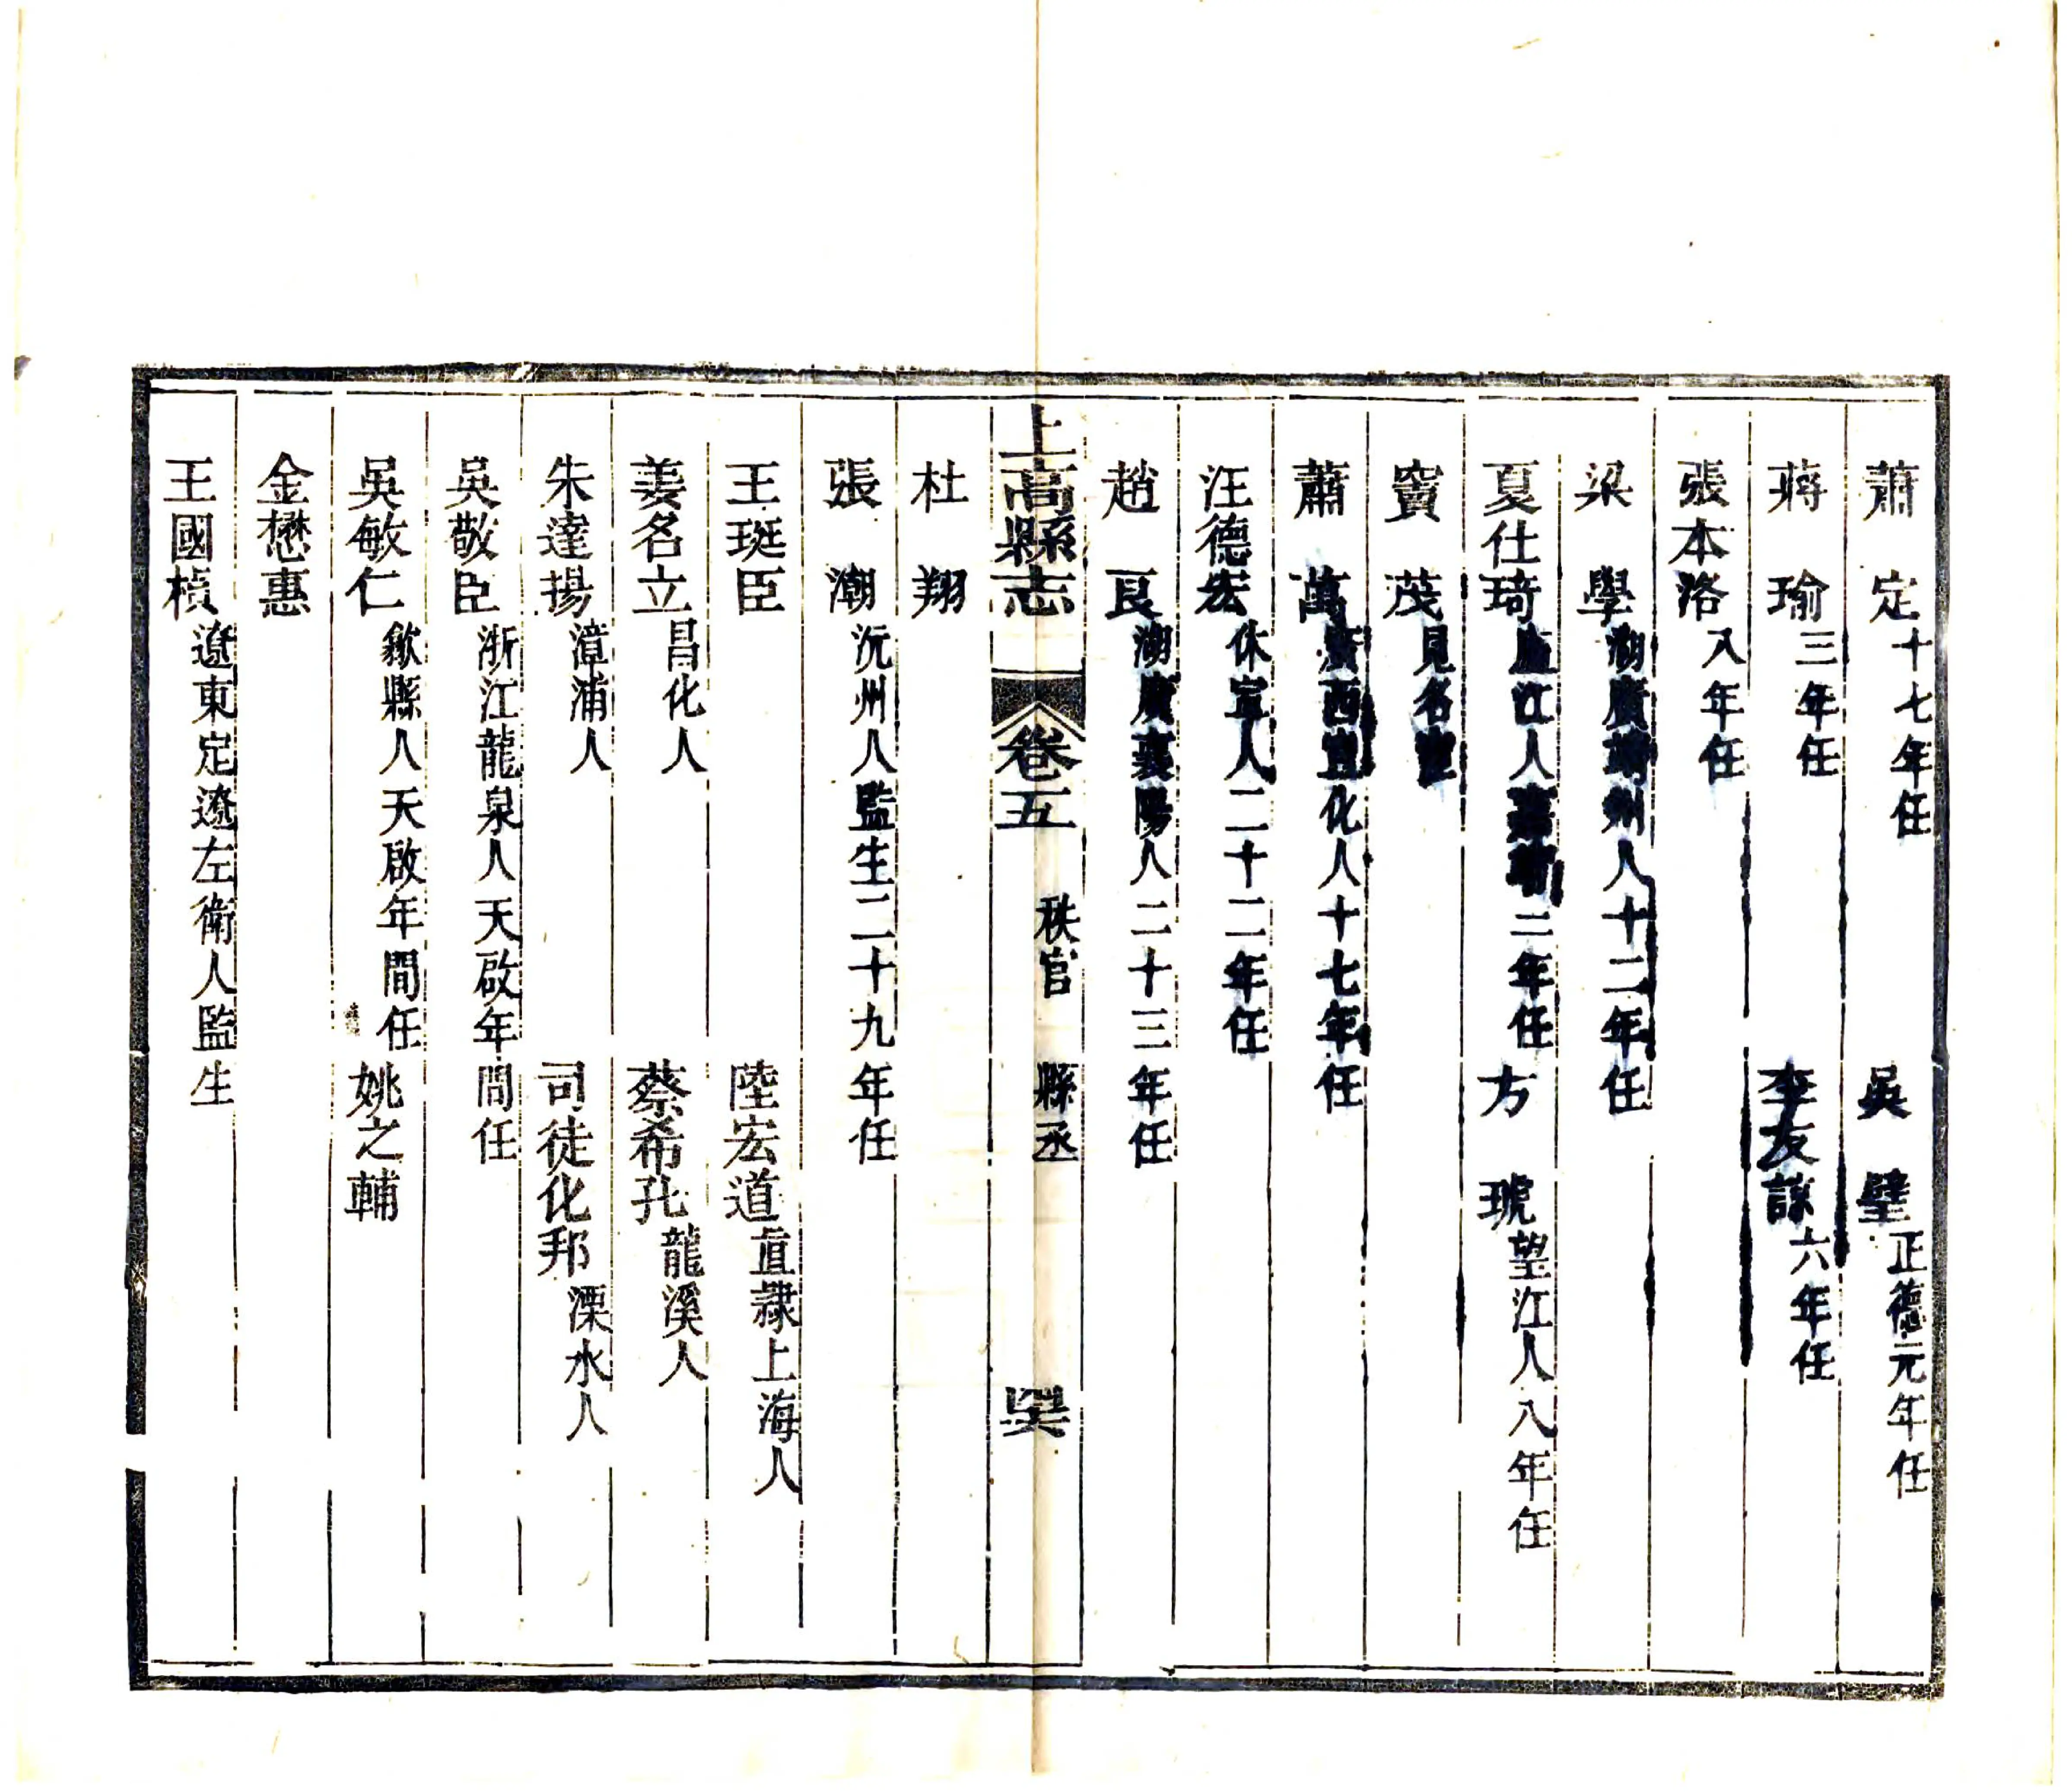 蕭　定十七年任　吳　璧正德元年任
蔣　瑜三年任　李友諒六年任
張本洛八年任
梁　學湖廣靖州人十二年任
夏仕琦廬江人嘉靖二年任　方　琥望江人八年任
竇　茂見名宦
蕭　萬廣西宣化人十七年任
汪德宏休寧人二十二年任
趙　良湖廣襄陽人二十三年任
上高縣志　卷五　秩官　縣丞
杜　翔
張　潮沅州人監生二十九年任
王珽臣　陸宏道直隸上海人
姜名立昌化人　蔡希孔龍溪人
朱達揚漳浦人　司徒化邦溧水人
吳敬臣浙江龍泉人天啟年間任
吳敏仁歙縣人天啟年間任　姚之輔
金懋惠
王國楨遼東定遼左衛人監生